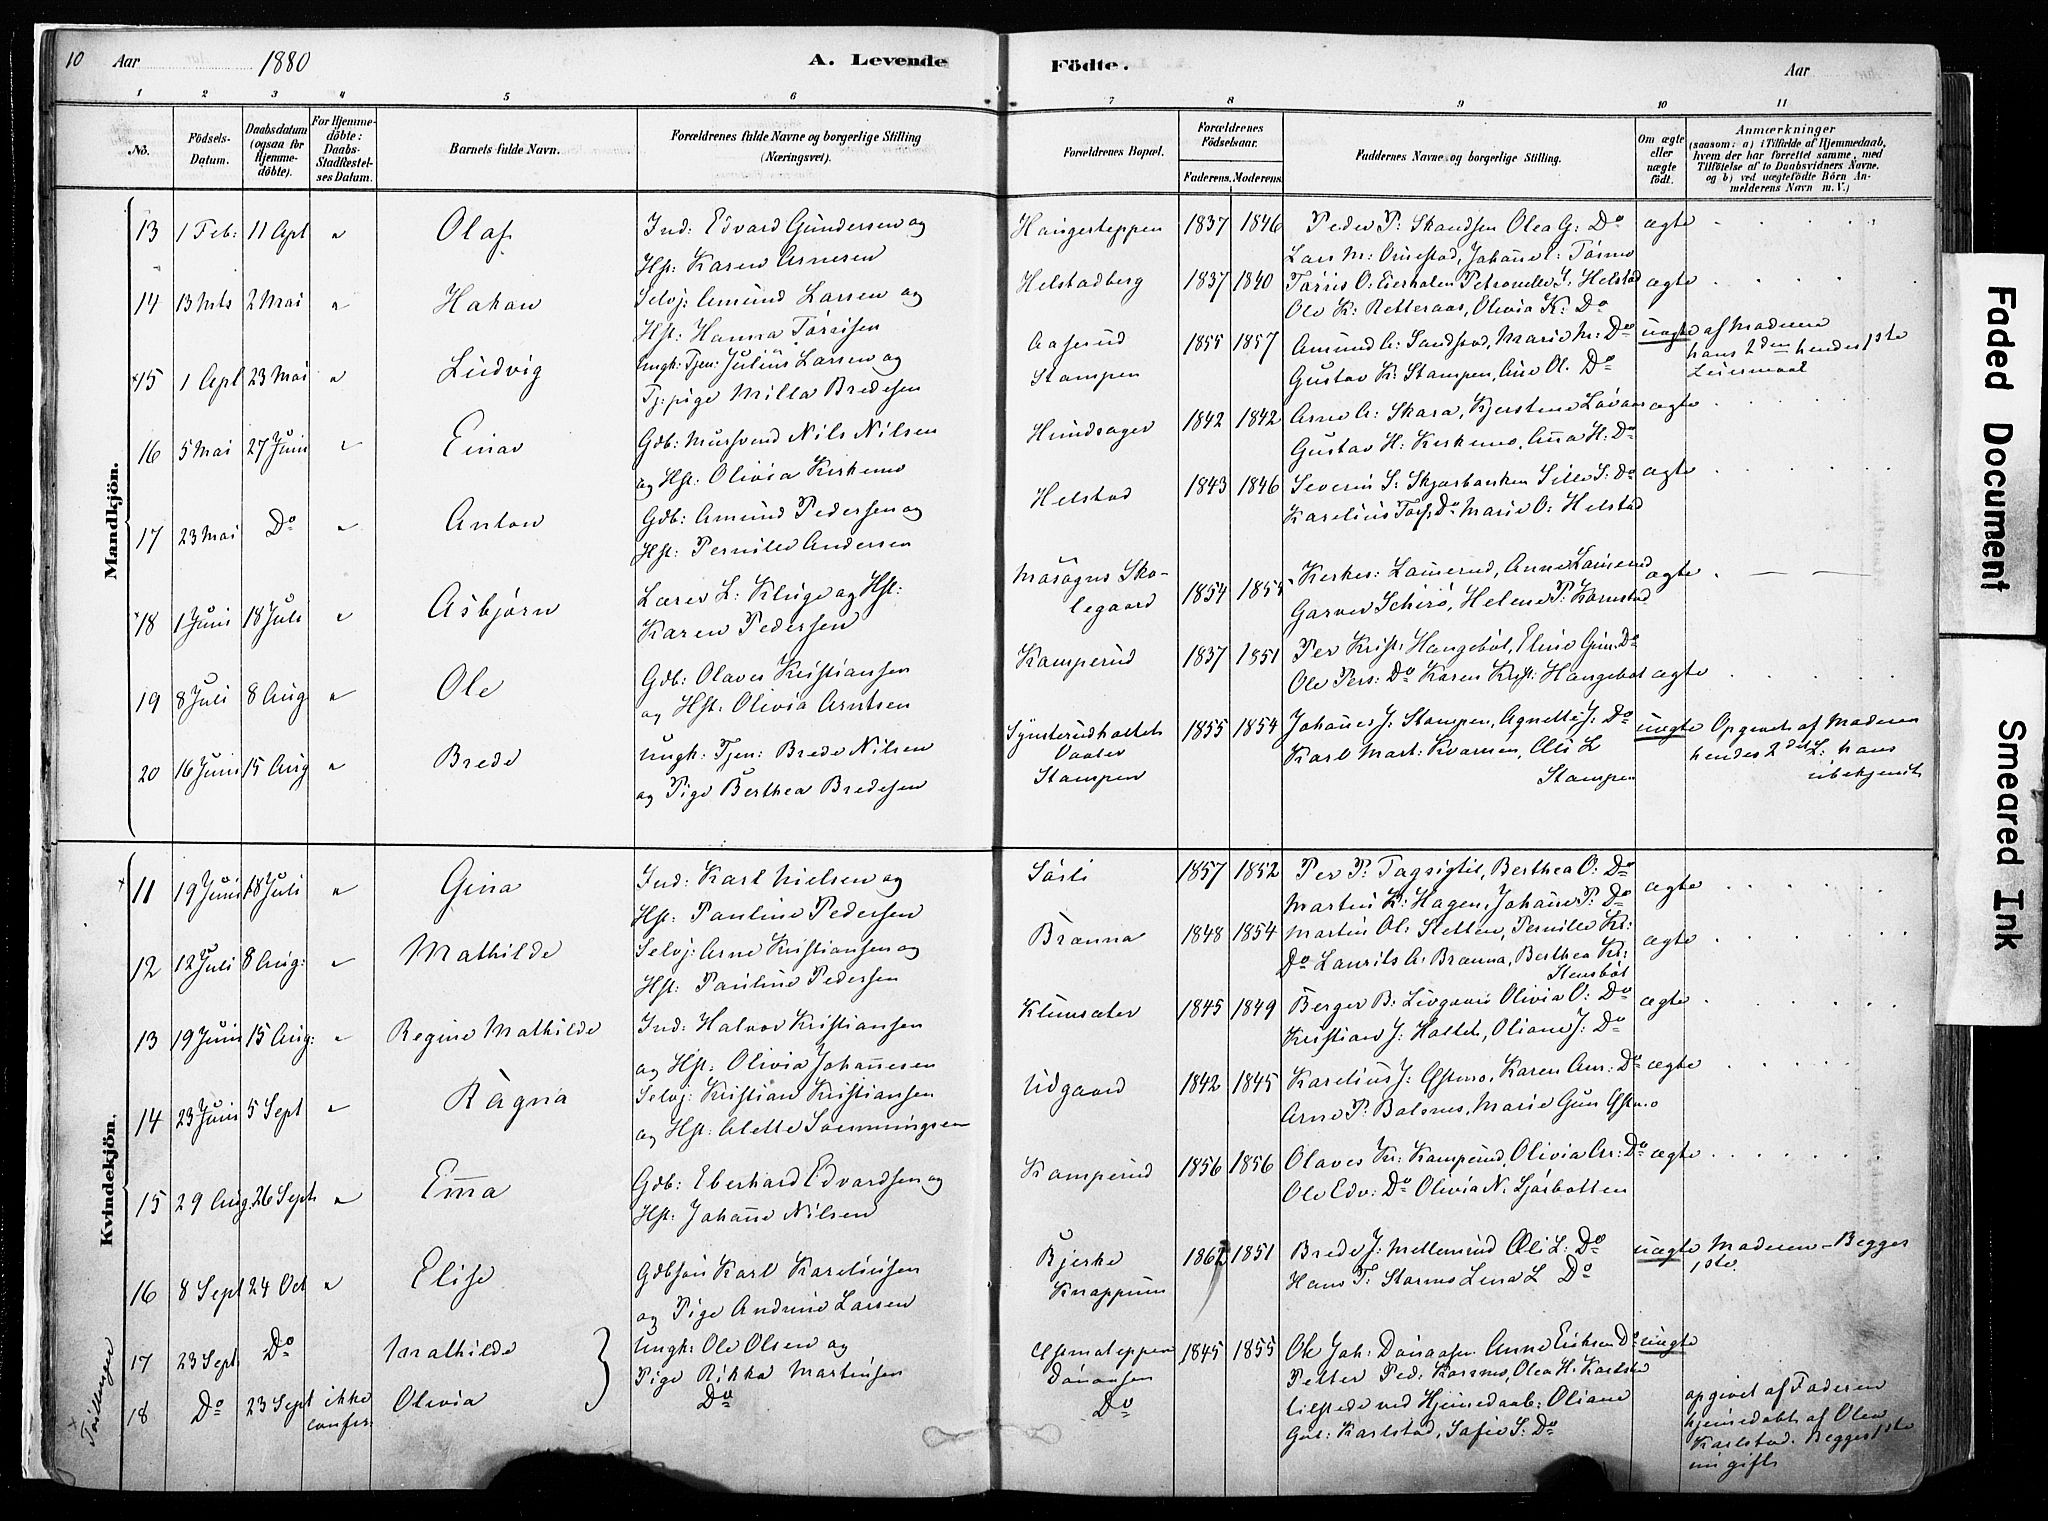 10 Aar 1880 A. Levende Födte. Aar
1 2 3 4 5 6 7 8 9 10 11
No.
Födsels-Datum.
Daabsdatum (ogsaa for Hjemmedöbte).
For Hjemmedöbte: Daabs-Stadfæstelses Datum.
Barnets fulde Navn.
Forældrenes fulde Navne og borgerlige Stilling (Næringsvei).
Forældrenes Bopæl.
Forældrenes Födselsaar.
Faderens. Moderens.
Faddernes Navne og borgerlige Stilling.
Om ægte eller uægte födt.
Anmærkninger
(saasom: a) i Tilfælde af Hjemmedaab,
hvem der har forrettet samme, med
Tilföielse af to Daabsvidners Navne,
og b) ved uægtefödte Börn An-
melderens Navn m. V.)
Mandkjön.
13 1 Feb: 11 Apl " Olaf Ind: Edvard Gundersen og Haugerteppen 1837 1846 Peder P: Skandsen Olea G: Do ægte
Hst: Karen Arnesen Lars M: Johanne Tørmo
14 13 Mts 2 Mai " Hakon Selvj: Amund Larsen og Helstadberg 1837 1840 Tørris O: Petronelle J: Helstad ægte
Hst: Hanna Tørrisen Ole K: Retteraas, Olivia K: Do
15 1 Apl 23 Mai " Ludvig Ungk: Tjen: Julius Larsen og Aaserud 1855 1857 Amund A: Sandstad, Marie M: Do uægte af Moderen
Tj: pige Milla Bredesen Stampen Gustav K: Stampen, Ane Ol. Do hans 2den hendes 1ste
Leiermaal
16 5 Mai 27 Juni " Einar Gdb: Mursvend Nils Nilsen Hundsager 1842 1842 Arne A: Skara, Kjerstine ægte
og Hst: Olivia Kirkemo Gustav H: Kirkemo, Anna H: Do
17 23 Mai Do " Anton Gdb: Amund Pedersen og Helstad 1843 1846 Severin S: Skjærbækken Sille S: Do ægte
Hst: Pernille Andersen Karelius Do Marie O: Helstad
18 1 Juni 18 Juli " Asbjørn Lærer L: Kluge og Hst: Masogns Sko- 1854 1855 Kirkes: Lamerud, Anne Lamerud ægte
Karen Pedersen legaard Garver Schirø, Helene P: Karnstad
19 8 Juli 8 Aug " Ole Gdb: Olaves Kristiansen Kamperud 1837 1851 Per Krist: Hangebøl, Eline Gun: Do
og Hst: Olivia Arntsen Ole Pers: Do Karen Krist: Hangebøl ægte
20 16 Juni 15 Aug " Brede Ungk: Tjen: Brede Nilsen Synsterudholtet 1855 1854 Johannes J. Stampen, Agnethe J: Do uægte Opgivet af Moderen
og Pige Berthea Bredesen Vaaler Karl Mart: Kvarnen, Oli L hendes 2det L: hans
Stampen Stampen ubekjendt
Kvindekjön.
11 19 Juni 18 Juli " Gina Ind: Karl Nielsen og Sørli 1857 1852 Per P: Fagsigtil, Berthea O: Do ægte
Hst: Pauline Pedersen Martin K: Hagen, Johanne P: Do
12 12 Juli 8 Aug: " Mathilde Selvj: Arne Kristiansen og Brænna 1848 1854 Martin Ol: Sletten, Pernille Kr: ægte
Hst: Pauline Pedersen Do Laurits A: Brænna, Berthea Kr:
Stensbøl
13 19 Juni 15 Aug: " Regine Mathilde Ind: Halvor Kristiansen Klumsæter 1845 1849 Berger B: Livgaard Olivia O: Do ægte
og Hst: Olivia Johannesen Kristian J: Holtet, Oliane J: Do
14 23 Juni 5 Sept " Ragna Selvj: Kristian Kristiansen Udgaard 1842 1845 Karelius J: Østmo, Karen Am: Do ægte
og Hst: Alette Svenningsen Arne P: Balsnes, Marie Gun Østmo
15 29 Aug. 26 Sept. " Emma Gdb: Eberhard Edvardsen og Kamperud 1856 1856 Olaves Kr: Kamperud, Olivia Ar: Do ægte
Hst: Johanne Nilsen Ole Edv: Do Olivia N. Sjørbotten
16 8 Sept 24 Oct " Elise Gdbsøn Karl Kareliusen Bjerke 1862 1851 Brede J: Mellemrud Oli L: Do uægte Moderen – Begges
og Pige Andrine Larsen Knappum Hans T: Starmo Lena L Do 1ste.
Tvillinger
17 23 Sept. Do Mathilde Ungk: Ole Olsen og Østmoteppen 1845 1855 Ole Joh: Anne Eriksen Do uægte
Pige Rikka Martinsen Petter Ped: Karsmo, Olea H. Karlstad
18 Do 23 Sept ikke Olivia Do Do tilstede ved Hjemmedaab: Oliane opgivet af Faderen
confer: Gul: Karlstad, Safie S: Do hjemmedøbt af Olea
Karlstad. Begges 1ste
ungift
Faded Document
Smeared Ink